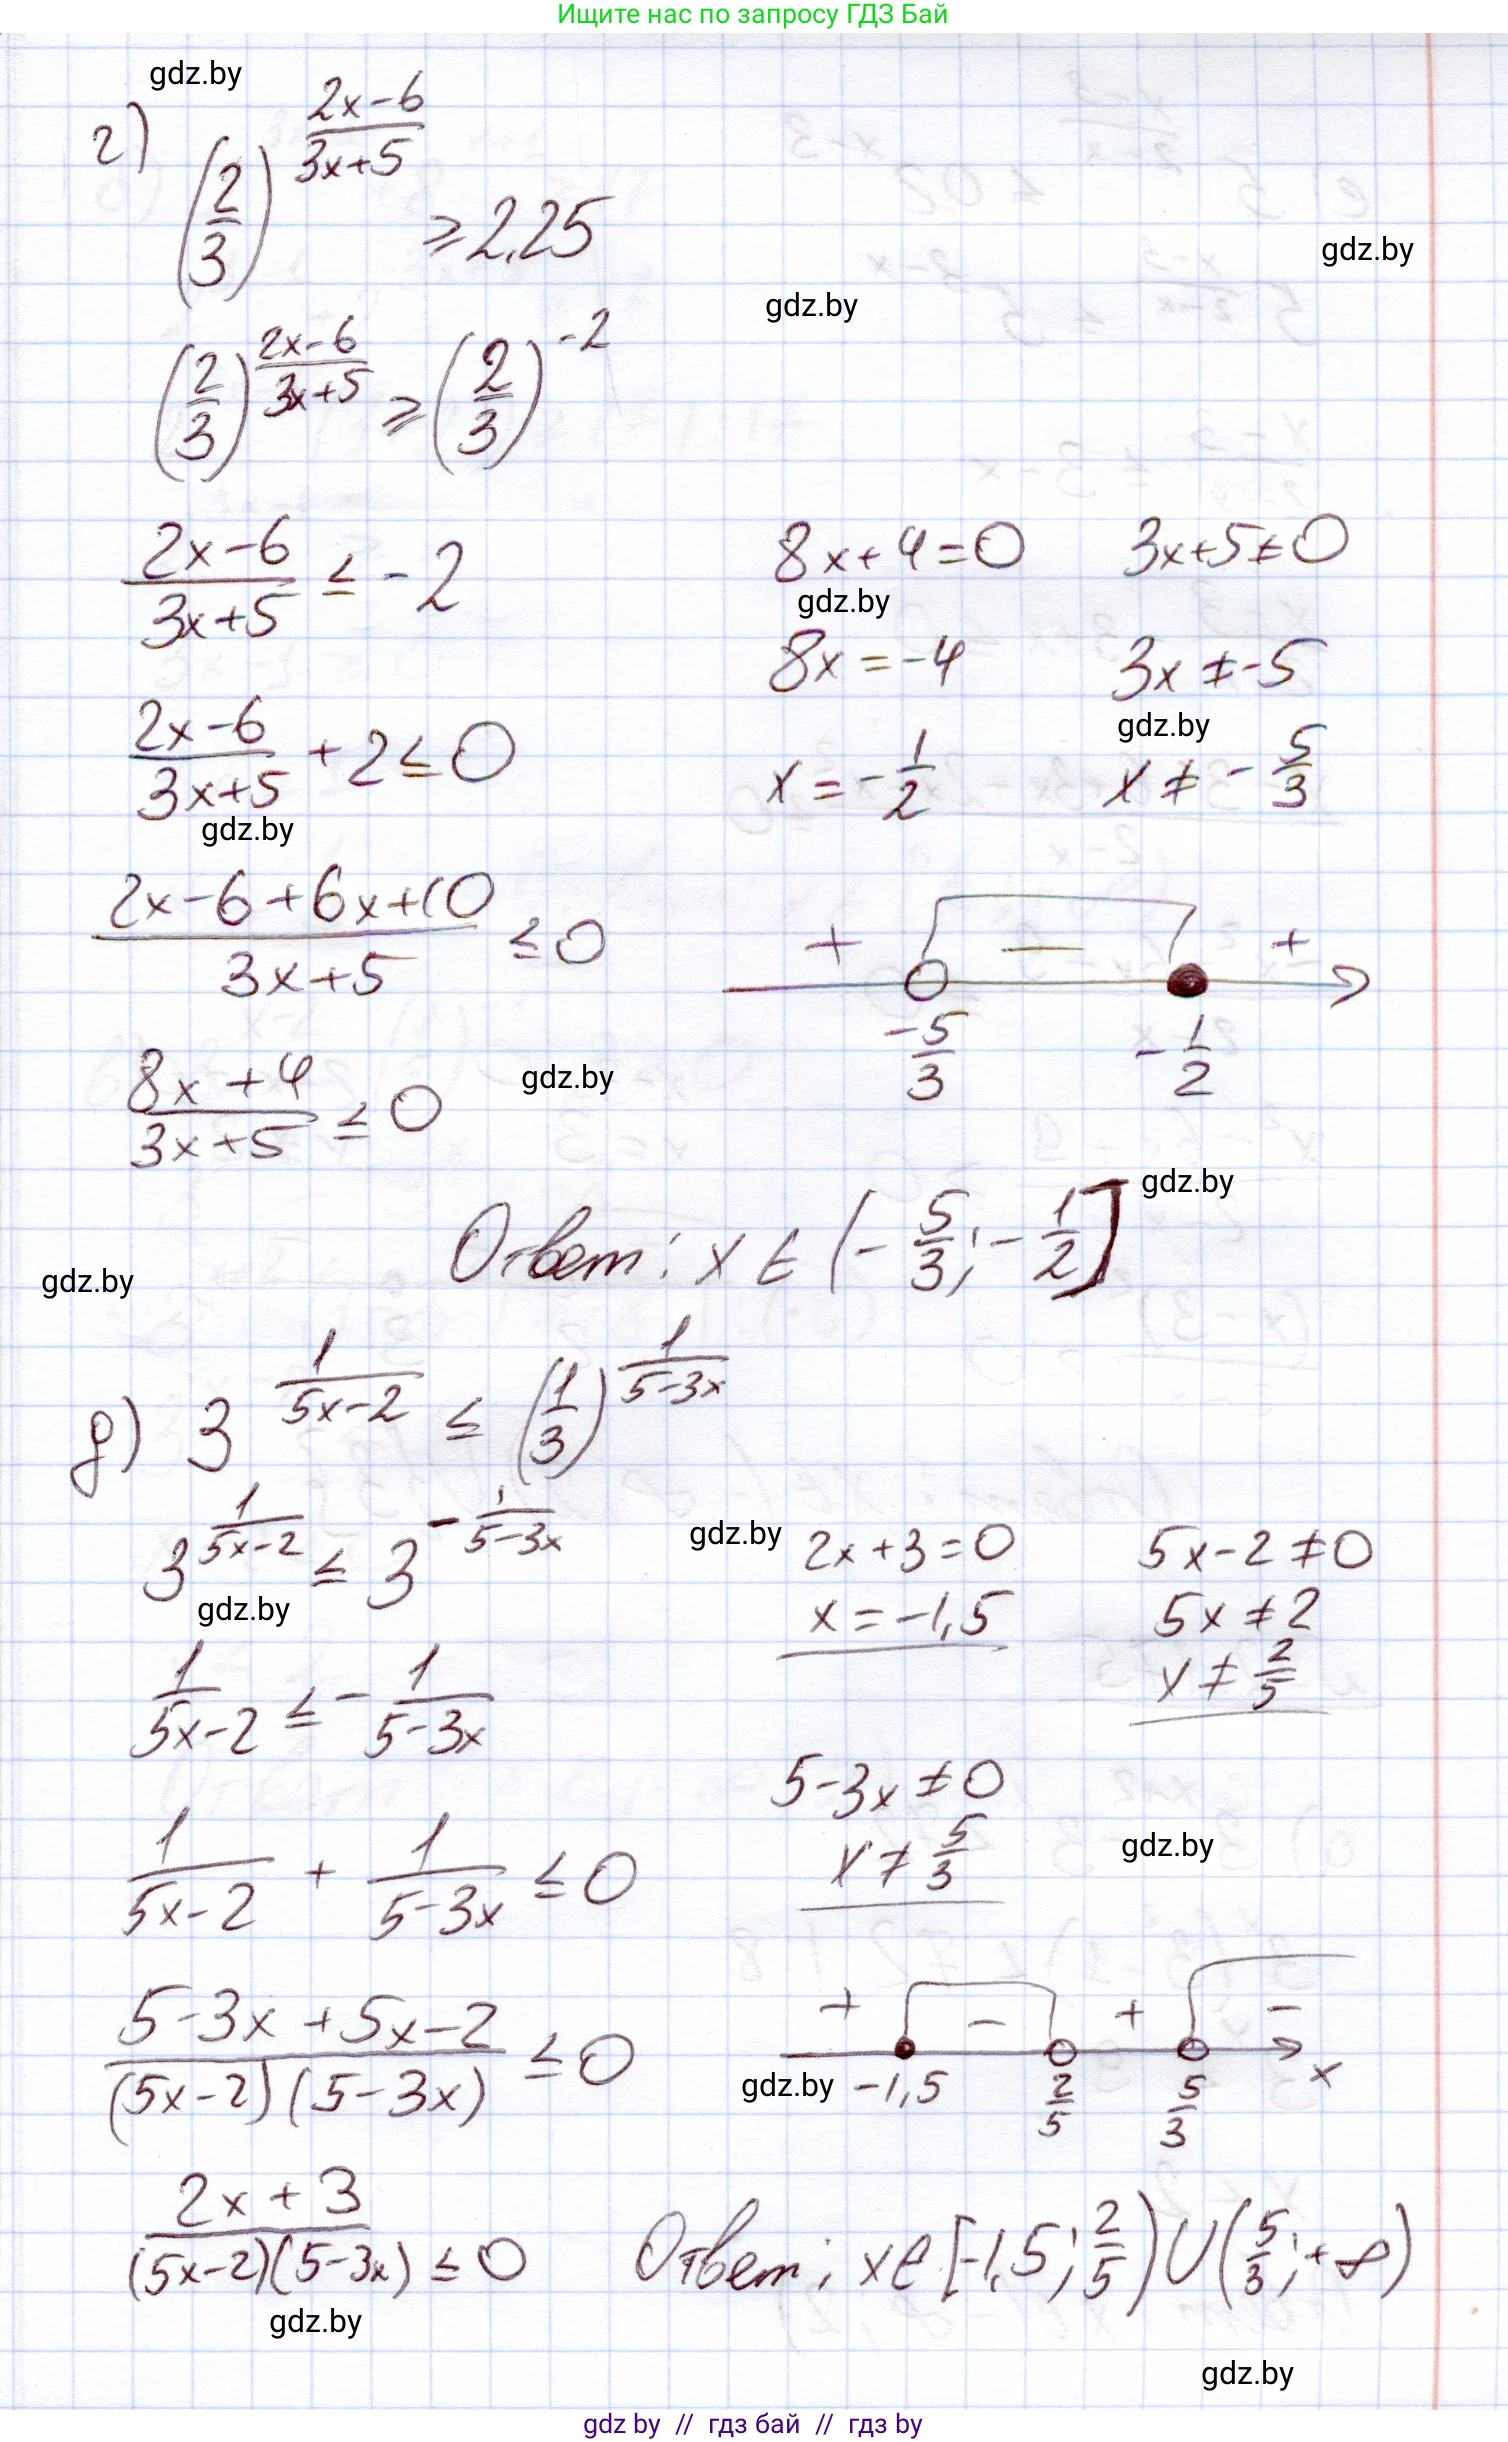 Ищите нас по запросу ГДЗ Бай
gdz.by
г) (2/3)^((2x-6)/(3x+5)) ≥ 2,25
gdz.by
gdz.by
(2/3)^((2x-6)/(3x+5)) ≥ (2/3)^(-2)
(2x-6)/(3x+5) ≤ -2
8x+4=0 3x+5≠0
gdz.by
8x=-4 3x≠-5
gdz.by
(2x-6)/(3x+5) + 2 ≤ 0
x=-1/2 x≠-5/3
gdz.by
(2x-6+6x+10)/(3x+5) ≤ 0
+ − +
-5/3 -1/2
(8x+4)/(3x+5) ≤ 0
gdz.by
gdz.by
Ответ: x∈(-5/3; -1/2]
gdz.by
д) 3^(1/(5x-2)) ≤ (1/3)^(1/(5-3x))
3^(1/(5x-2)) ≤ 3^(-1/(5-3x))
gdz.by
gdz.by
2x+3=0 5x-2≠0
x=-1,5 5x≠2
x≠2/5
1/(5x-2) ≤ -1/(5-3x)
5-3x≠0
x≠5/3
gdz.by
1/(5x-2) + 1/(5-3x) ≤ 0
(5-3x+5x-2)/((5x-2)(5-3x)) ≤ 0
+ − + −
gdz.by
-1,5 2/5 5/3 x
(2x+3)/((5x-2)(5-3x)) ≤ 0
Ответ: x∈[-1,5; 2/5)∪(5/3; +∞)
gdz.by
gdz.by
gdz by // гдз бай // гдз by